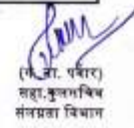 (ग. ना. पवार)
सहा.कुलसचिव
संलग्नता विभाग